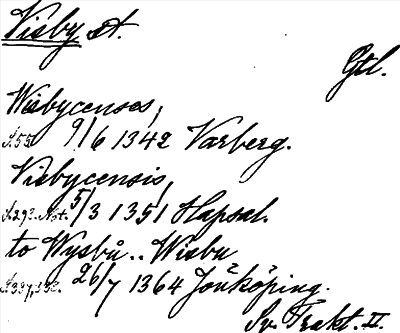 Visby st.
Gtl.
Wisbycenses,
9/6 1342 Varberg.
Visbycensis,
5/3 1351 Hapsal.
to Wysbů.. Wisbu
26/7 1364 Jönköping.
Sv. Trakt. II.